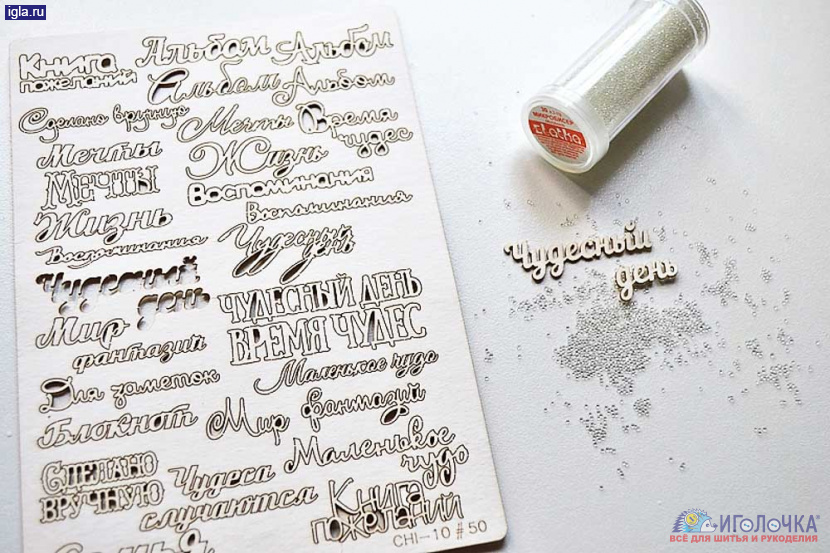 igla.ru
Книга
пожеланий
Альбом
Альбом
Альбом
Альбом
Сделано вручную
Мечты
Время
чудес
Мечты
Жизнь
Мечты
Воспоминания
Жизнь
Воспоминания
Воспоминания
Чудесный
день
Чудесный
день
ЧУДЕСНЫЙ ДЕНЬ
ВРЕМЯ ЧУДЕС
Мир
фантазий
Маленькое чудо
Для заметок
Блокнот
Мир фантазий
Маленькое
чудо
Сделано
вручную
Чудеса
случаются
Книга
пожеланий
CHI-10 #50
МИКРОБИСЕР
Zlatka
Чудесный
день
ИГОЛОЧКА
ВСЁ ДЛЯ ШИТЬЯ И РУКОДЕЛИЯ